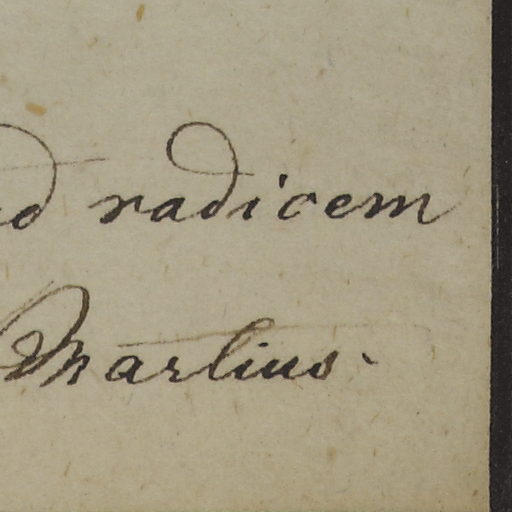 ad radicem
Martius.